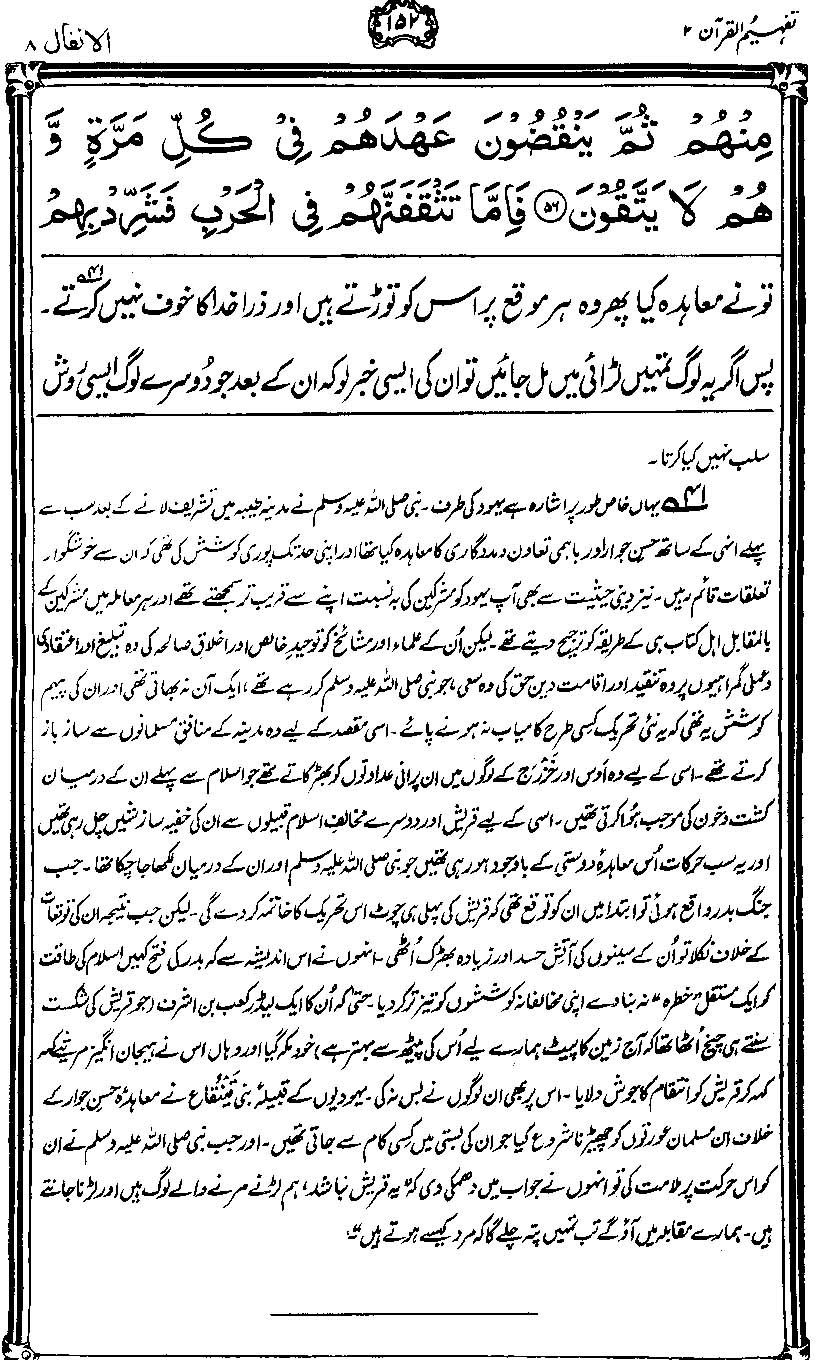 تفہیم القرآن ۲
۱۵۲
الانفال ۸
مِنْهُمْ ثُمَّ يَنْقُضُوْنَ عَهْدَهُمْ فِيْ كُلِّ مَرَّةٍ وَّ
هُمْ لَا يَتَّقُوْنَ ﴿۵۶﴾ فَاِمَّا تَثْقَفَنَّهُمْ فِي الْحَرْبِ فَشَرِّدْ بِهِمْ
تو نے معاہدہ کیا پھر وہ ہر موقع پر اس کو توڑتے ہیں اور ذرا خدا کا خوف نہیں کرتے۔ ۴۱ھ
پس اگر یہ لوگ تمہیں لڑائی میں مل جائیں تو ان کی ایسی خبر لو کہ ان کے بعد جو دُوسرے لوگ ایسی رَوش
سلب نہیں کیا کرتا۔
۴۱ھ یہاں خاص طور پر اشارہ ہے یہود کی طرف۔ نبی صلی اللہ علیہ وسلم نے مدینہ طیبہ میں تشریف لانے کے بعد سب سے
پہلے انہی کے ساتھ حسنِ جوار اور باہمی تعاون و مددگاری کا معاہدہ کیا تھا اور اپنی حد تک پوری کوشش کی تھی کہ ان سے خوشگوار
تعلقات قائم رہیں۔ نیز دینی حیثیت سے بھی آپ یہود کو مشرکین کی بہ نسبت اپنے سے قریب تر سمجھتے تھے اور ہر معاملہ میں مشرکین کے
بالمقابل اہل کتاب ہی کے طریقہ کو ترجیح دیتے تھے۔ لیکن اُن کے علماء اور مشائخ کو توحیدِ خالص اور اخلاق صالحہ کی وہ تبلیغ اور اعتقادی
و عملی گمراہیوں پر وہ تنقید اور اقامت دین حق کی وہ سعی، جو نبی صلی اللہ علیہ وسلم کر رہے تھے، ایک آن نہ بھاتی تھی اور ان کی پیہم
کوشش یہ تھی کہ یہ نئی تحریک کسی طرح کامیاب نہ ہونے پائے۔ اسی مقصد کے لیے وہ مدینہ کے منافق مسلمانوں سے ساز باز
کرتے تھے۔ اسی کے لیے وہ اَوس اور خَزرَج کے لوگوں میں ان پرانی عداوتوں کو بھڑکاتے تھے جو اسلام سے پہلے ان کے درمیان
کشت و خون کی موجب ہوُا کرتی تھیں۔ اسی کے لیے قریش اور دوسرے مخالفِ اسلام قبیلوں سے ان کی خفیہ سازشیں چل رہی تھیں
اور یہ سب حرکات اُس معاہدۂ دوستی کے باوجود ہو رہی تھیں جو نبی صلی اللہ علیہ وسلم اور ان کے درمیان لکھا جا چکا تھا۔ جب
جنگ بدر واقع ہوئی تو ابتدا میں ان کو توقع تھی کہ قریش کی پہلی ہی چوٹ اس تحریک کا خاتمہ کر دے گی۔ لیکن جب نتیجہ ان کی توقعات
کے خلاف نکلا تو اُن کے سینوں کی آتشِ حسد اور زیادہ بھڑک اُٹھی۔ انہوں نے اس اندیشہ سے کہ بدر کی فتح کہیں اسلام کی طاقت
کو ایک مستقل ”خطرہ“ نہ بنا دے اپنی مخالفانہ کوششوں کو تیز تر کر دیا۔ حتیٰ کہ اُن کا ایک لیڈر کعب بن اشرف (جو قریش کی شکست
سنتے ہی چیخ اُٹھا تھا کہ آج زمین کا پیٹ ہمارے لیے اُس کی پیٹھ سے بہتر ہے) خود مکہ گیا اور وہاں اس نے ہیجان انگیز مرثیے کہہ
کہہ کر قریش کو انتقام کا جوش دلایا۔ اس پر بھی ان لوگوں نے بس نہ کی۔ یہودیوں کے قبیلۂ بنی قَینُقاع نے معاہدۂ حسنِ جوار کے
خلاف ان مسلمان عورتوں کو چھیڑنا شروع کیا جو ان کی بستی میں کسی کام سے جاتی تھیں۔ اور جب نبی صلی اللہ علیہ وسلم نے ان
کو اس حرکت پر ملامت کی تو انہوں نے جواب میں دھمکی دی کہ ”یہ قریش نباشد، ہم لڑنے مرنے والے لوگ ہیں اور لڑنا جانتے
ہیں۔ ہمارے مقابلہ میں آؤ گے تب تمہیں پتہ چلے گا کہ مرد کیسے ہوتے ہیں“۔